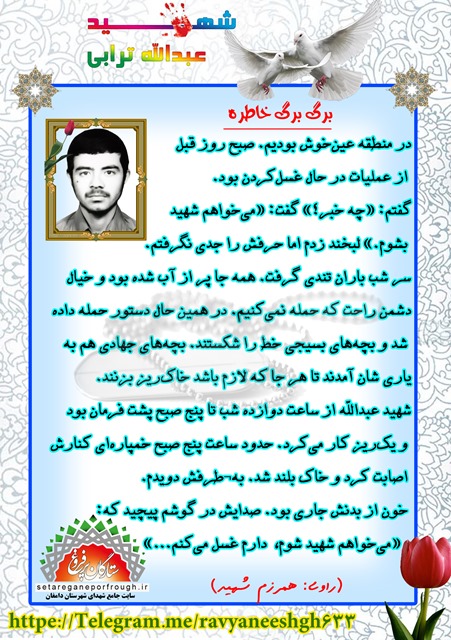 شهید
عبدالله ترابی
برگ برگ خاطره
در منطقه عین‌خوش بودیم. صبح روز قبل
از عملیات در حال غسل‌کردن بود.
گفتم: «چه خبر؟» گفت: «می‌خواهم شهید
بشوم.» لبخند زدم اما حرفش را جدی نگرفتم.
سر شب باران تندی گرفت. همه جا پر از آب شده بود و خیال
دشمن راحت که حمله نمی‌کنیم. در همین حال دستور حمله داده
شد و بچه‌های بسیجی خط را شکستند. بچه‌های جهادی هم به
یاری شان آمدند تا هر جا که لازم باشد خاک‌ریز بزنند.
شهید عبدالله از ساعت دوازده شب تا پنج صبح پشت فرمان بود
و یک‌ریز کار می‌کرد. حدود ساعت پنج صبح خمپاره‌ای کنارش
اصابت کرد و خاک بلند شد. به¬طرفش دویدم.
خون از بدنش جاری بود. صدایش در گوشم پیچید که:
«می‌خواهم شهید شوم، دارم غسل می‌کنم...»
(راوی: همرزم شهید)
ستارگان پرفروغ
setareganeporfrough.ir
سایت جامع شهدای شهرستان دامغان
https://Telegram.me/ravyaneeshgh633